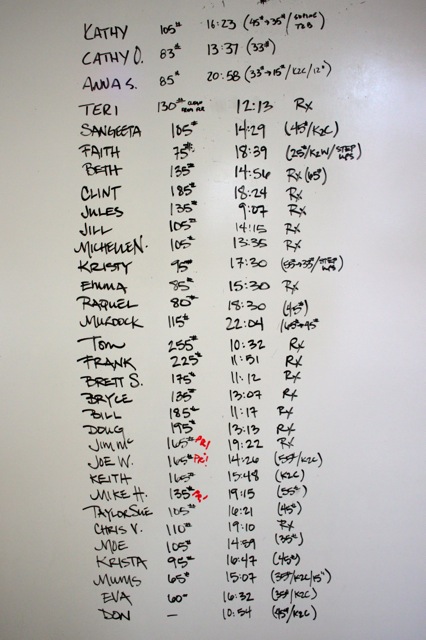 KATHY 105# 16:23 (45#→35#/SOME T2B)
CATHY O. 83# 13:37 (33#)
ANNA S. 85# 20:58 (33#→15#/K2C/12")
TERI 130# CLEAN 12:13 Rx
SANGEETA 105# 14:29 (45#/K2C)
FAITH 75# 18:39 (25#/K2W/STEP UPS)
BETH 135# 14:56 Rx (65#)
CLINT 185# 18:24 Rx
JULES 135# 9:07 Rx
JILL 105# 14:15 Rx
MICHELLE N. 105# 13:35 Rx
KRISTY 95# 17:30 (55#→35#/STEP UPS)
EMMA 85# 15:30 Rx
RAQUEL 80# 18:30 (45#)
MURDOCK 115# 22:04
TOM 255# 10:32 Rx
FRANK 225# 11:51 Rx
BRETT S. 175# 11:12 Rx
BRYCE 135# 13:07 Rx
BILL 185# 11:17 Rx
DOUG 195# 13:13 Rx
JIM MC 165# PR! 19:22 Rx
JOE W. 165# PR! 14:26 (55#/K2C)
KEITH 165# 15:48 (K2C)
MIKE H. 135# 19:15 (55#)
TAYLOR SUE 105# 16:21 (45#)
CHRIS V. 110# 19:10 Rx
MOE 105# 14:59 (35#)
KRISTA 95# 16:47 (45#)
MUMS 65# 15:07 (35#/K2C/15")
EVA 60# 16:32 (35#/K2C)
DON — 10:54 (45#/K2C)